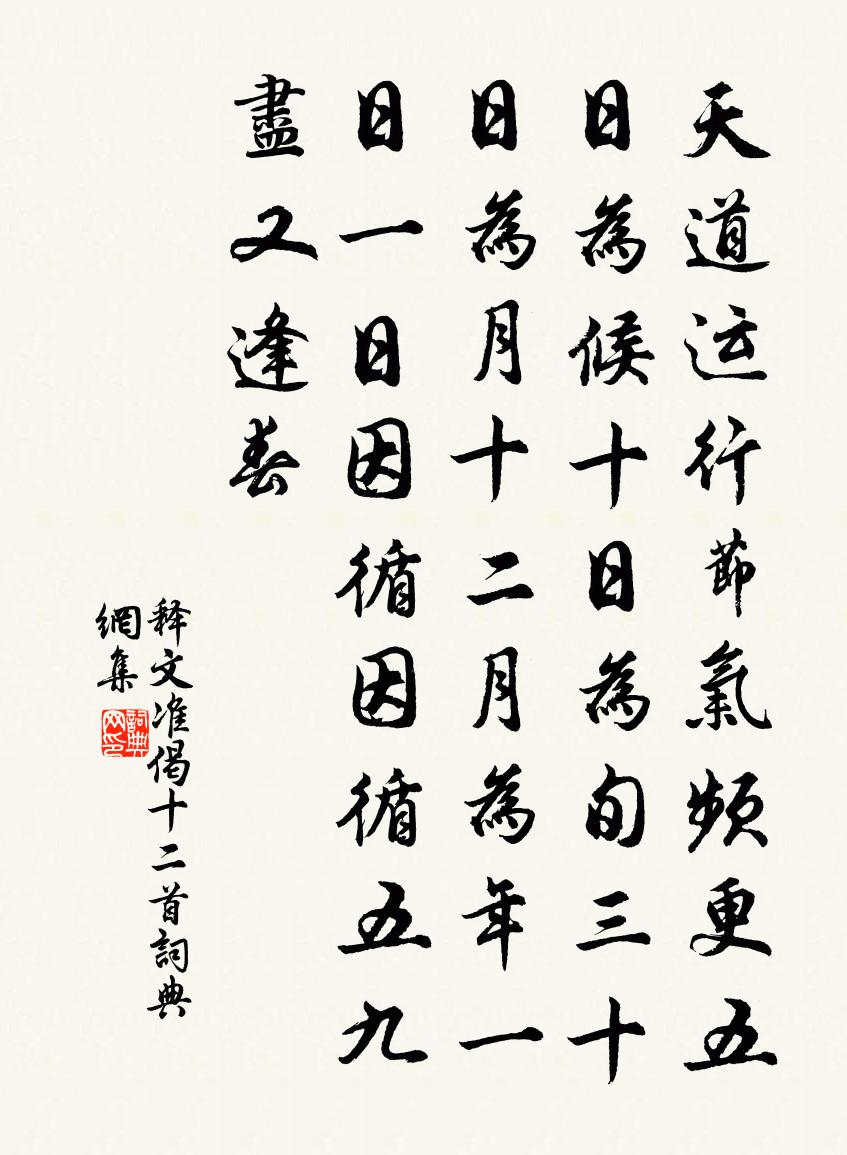 天道运行節氣频更五
日為候十日為旬三十
日為月十二月為年一
日一日因循因循五九
盡又逢春
释文准偈十二首詞典
網集
詞典
网印